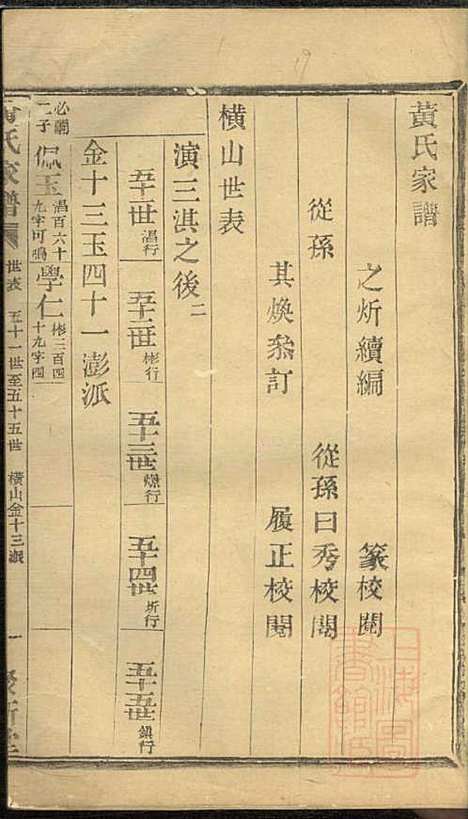 黃氏家譜
之炘續編　篆校閱
從孫　從孫曰秀校閱
其煥叅訂　履正校閱
橫山世表
演三淇之後二
五十一世　淐行　五十二世　彬行　五十三世　爜行　五十四世　圻行　五十五世　鎮行
金十三玉四十一澎派
必嗣二子　佩玉　淐百六十九字可鳴　學仁　彬三百四十九字四
黃氏家譜　世表　五十一世至五十五世　橫山金十三派　一
上海圖書館藏